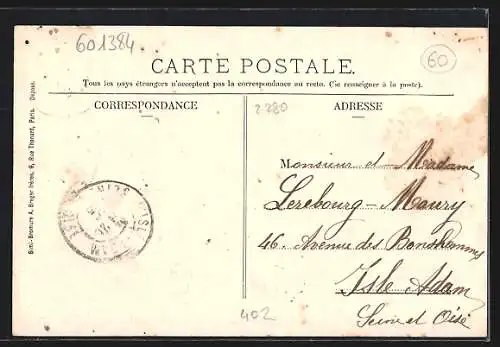 601384
60
CARTE POSTALE
Tous les pays étrangers n'acceptent pas la correspondance au recto. (Se renseigner à la poste).
CORRESPONDANCE
2280
ADRESSE
Monsieur et Madame
Lerebourg-Maury
46. Avenue des Bonshommes
Isle Adam
Seine et Oise
402
Frères, 9, Rue Paris. Déposé.